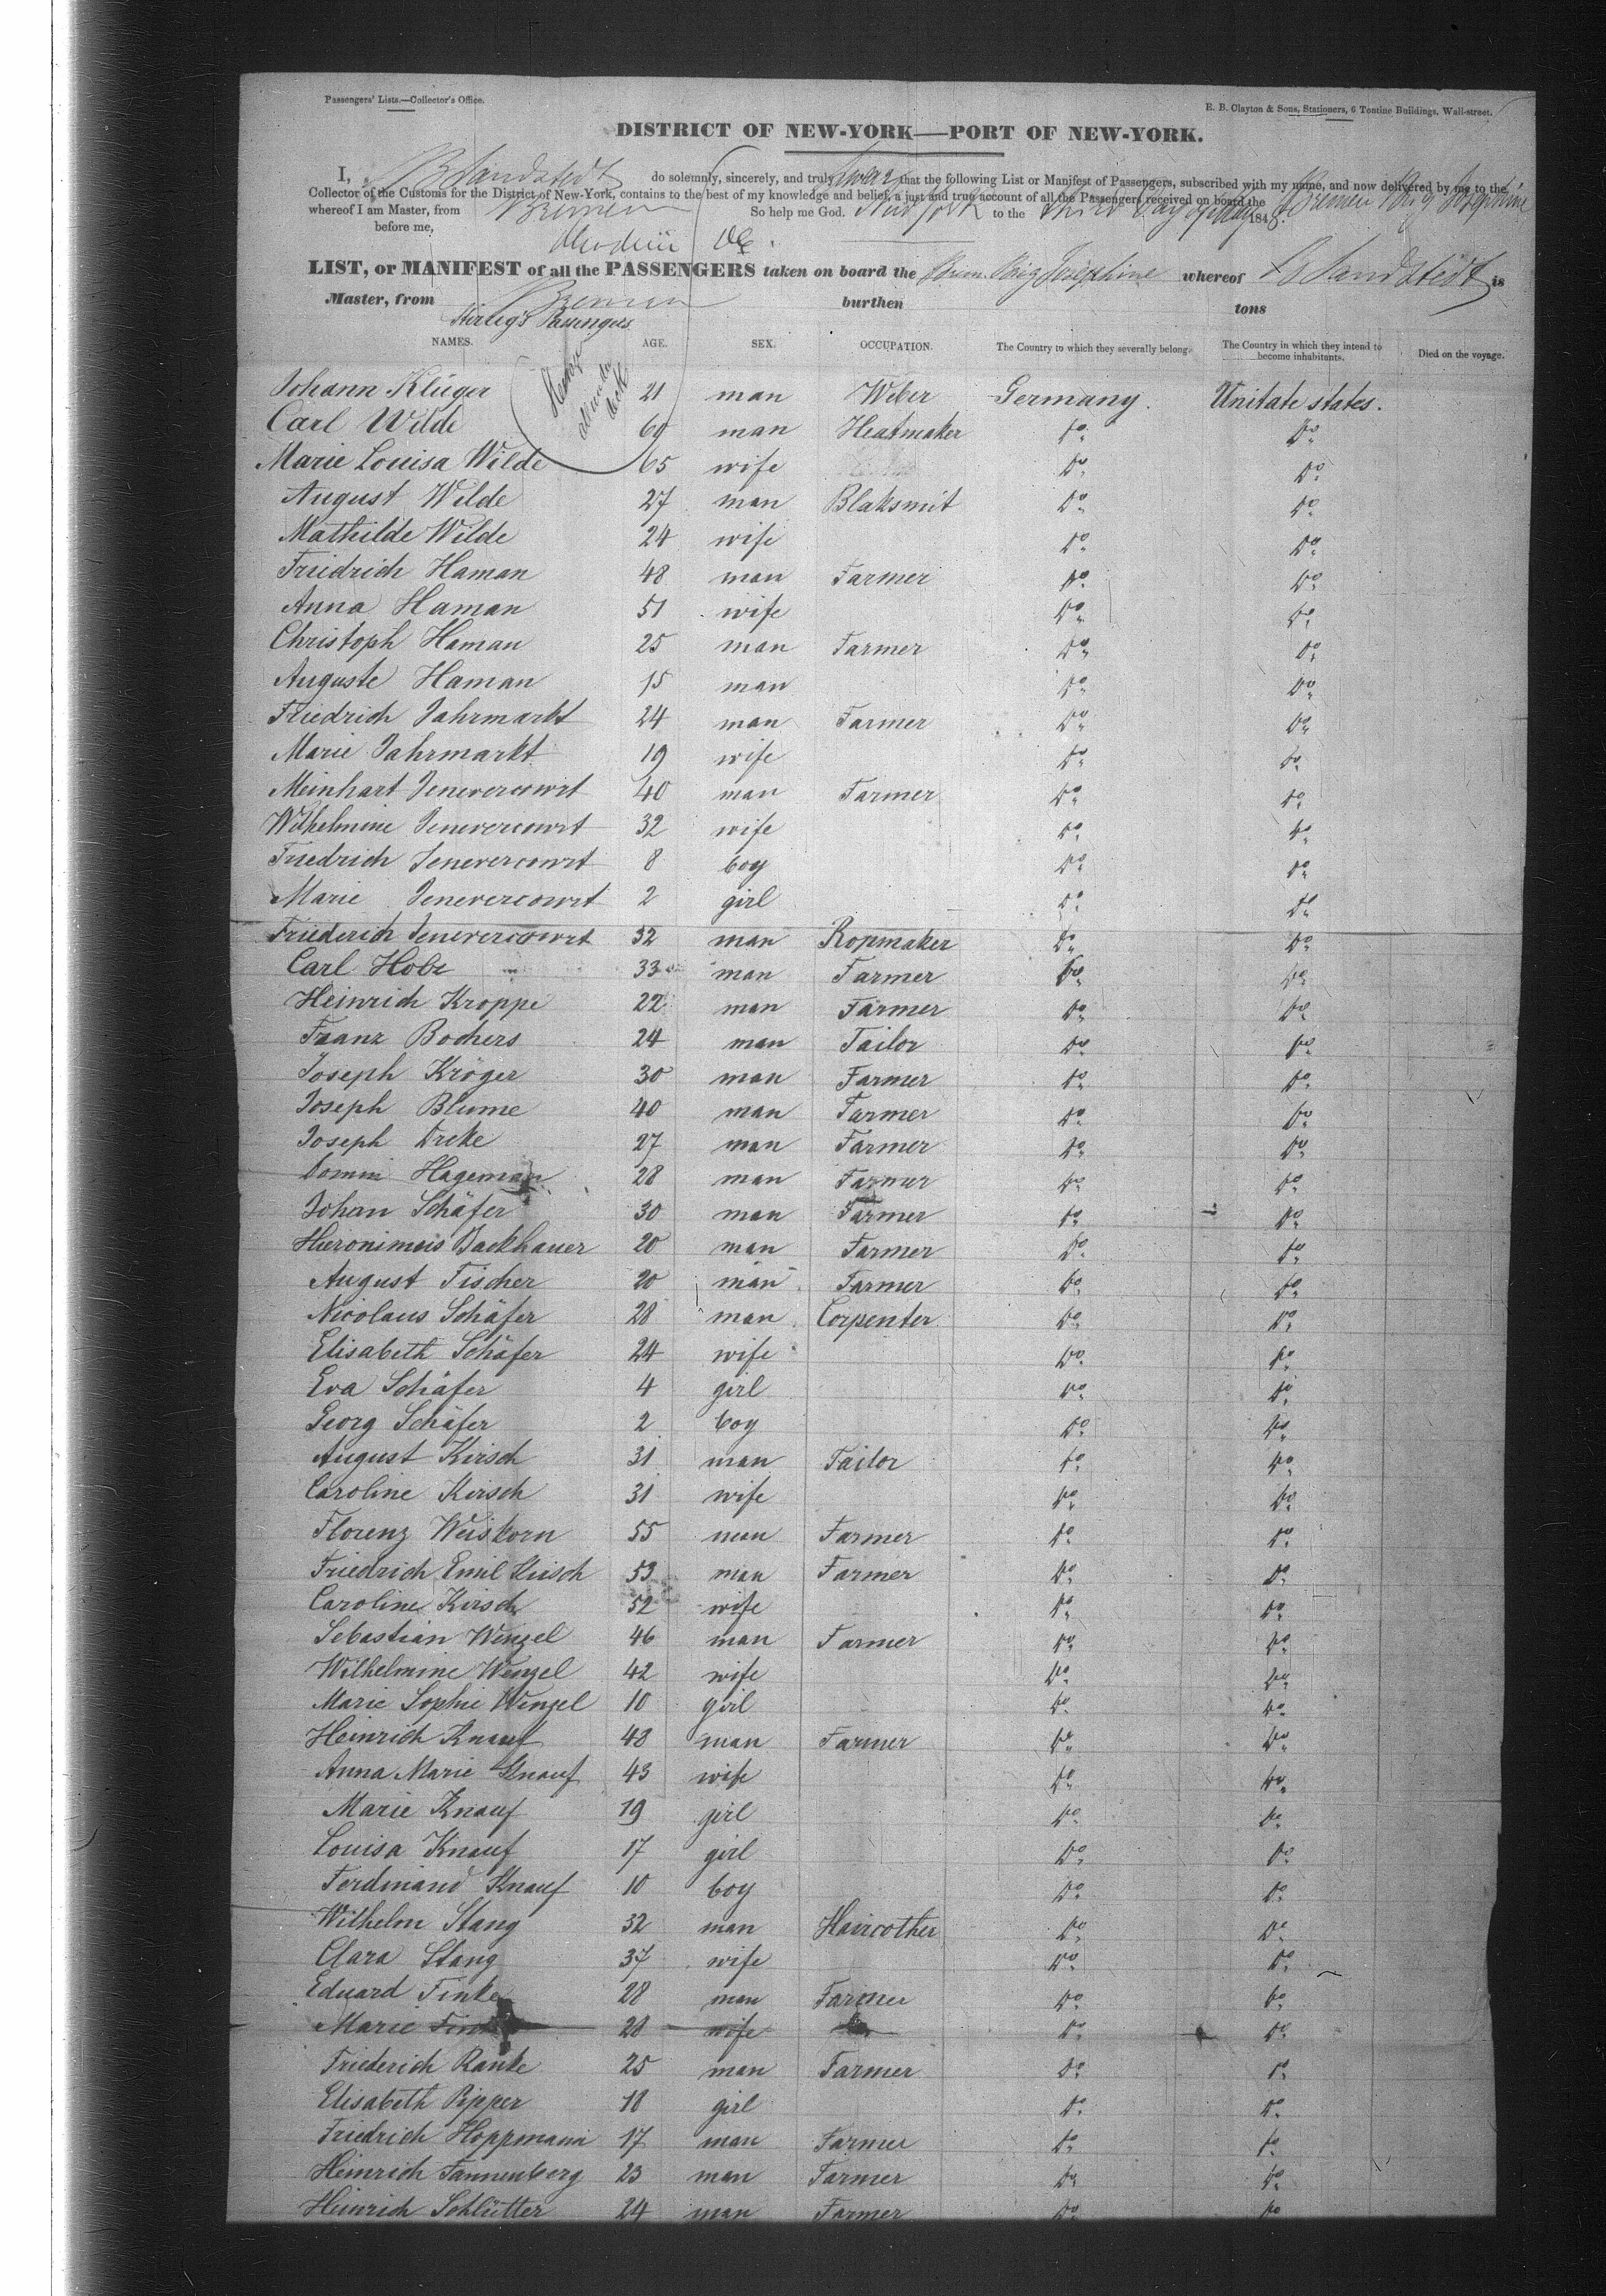 Passengers' Lists.—Collector's Office.
E. B. Clayton & Sons, Stationers, 6 Tontine Buildings, Wall-street.
DISTRICT OF NEW-YORK—PORT OF NEW-YORK.
I, B Sandstedt do solemnly, sincerely, and truly swear that the following List or Manifest of Passengers, subscribed with my name, and now delivered by me to the
Collector of the Customs for the District of New-York, contains to the best of my knowledge and belief, a just and true account of all the Passengers received on board the Bremen Brig Josephine
whereof I am Master, from Bremen So help me God. New York to the third Day of May 1848.
before me,
LIST, or MANIFEST of all the PASSENGERS taken on board the Brem. Brig Josephine whereof B Sandstedt is
Master, from Bremen burthen tons
Passengers
NAMES. AGE. SEX. OCCUPATION. The Country to which they severally belong. The Country in which they intend to become inhabitants. Died on the voyage.
Johann Klüger 21 man Weber Germany. Unitate states.
Carl Wilde 60 man Heatmaker Do Do
Marie Louisa Wilde 65 wife Do Do
August Wilde 27 man Blaksmit Do Do
Mathilde Wilde 24 wife Do Do
Friedrich Haman 48 man Farmer Do Do
Anna Haman 51 wife Do Do
Christoph Haman 25 man Farmer Do Do
Auguste Haman 15 man Do Do
Friedrich Jahrmarkt 24 man Farmer Do Do
Marie Jahrmarkt 19 wife Do Do
Meinhart Jenevercourt 40 man Farmer Do Do
Wilhelmine Jenevercourt 32 wife Do Do
Friedrich Jenevercourt 8 boy Do Do
Marie Jenevercourt 2 girl Do Do
Friederich Jenevercourt 32 man Ropmaker Do Do
Carl Hobe 33 man Farmer Do Do
Heinrich Kroppe 22 man Farmer Do Do
Franz Bochers 24 man Tailor Do Do
Joseph Kröger 30 man Farmer Do Do
Joseph Blume 40 man Farmer Do Do
Joseph Dreke 27 man Farmer Do Do
Hageman 28 man Farmer Do Do
Johan Schäfer 30 man Farmer Do Do
Hieronimus Backhauer 20 man Farmer Do Do
August Fischer 20 man Farmer Do Do
Nicolaus Schäfer 28 man Corpenter Do Do
Elisabeth Schäfer 24 wife Do Do
Eva Schäfer 4 girl Do Do
Georg Schäfer 2 boy Do Do
August Kirsch 31 man Tailor Do Do
Caroline Kirsch 31 wife Do Do
Florenz Weiskorn 55 man Farmer Do Do
Friedrich Emil Kirsch 53 man Farmer Do Do
Caroline Kirsch 52 wife Do Do
Sebastian Wenzel 46 man Farmer Do Do
Wilhelmine Wenzel 42 wife Do Do
Marie Sophie Wenzel 10 girl Do Do
Heinrich Knauf 48 man Farmer Do Do
Anna Marie Knauf 43 wife Do Do
Marie Knauf 19 girl Do Do
Louisa Knauf 17 girl Do Do
Ferdinand Knauf 10 boy Do Do
Wilhelm Stang 32 man Haircother Do Do
Clara Stang 37 wife Do Do
Eduard Finke 28 man Farmer Do Do
Marie Finke 28 wife Do Do
Friederich Ranke 25 man Farmer Do Do
Elisabeth Pipper 18 girl Do Do
Friedrich Hoppmann 17 man Farmer Do Do
Heinrich Tannenberg 23 man Farmer Do Do
Heinrich Schlütter 24 man Farmer Do Do